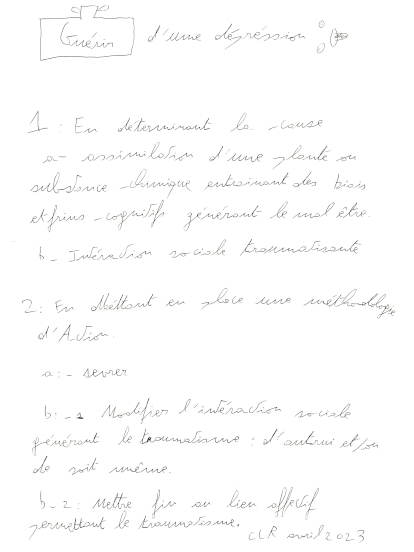 Guérir d'une dépréssion :
1 : En déterminant la cause
a- assimilation d'une plante ou
substance chimique entrainant des biais
et freins cognitifs générant le mal être.
b - Intéraction sociale traumatisante
2 : En Mettant en place une méthodologie
d'Action.
a : - sevrer
b : - 1 Modifier l'intéraction sociale
générant le traumatisme : d'autrui et/ou
de soit même.
b - 2 : Mettre fin au lien affectif
permettant le traumatisme.
CLR avril 2023